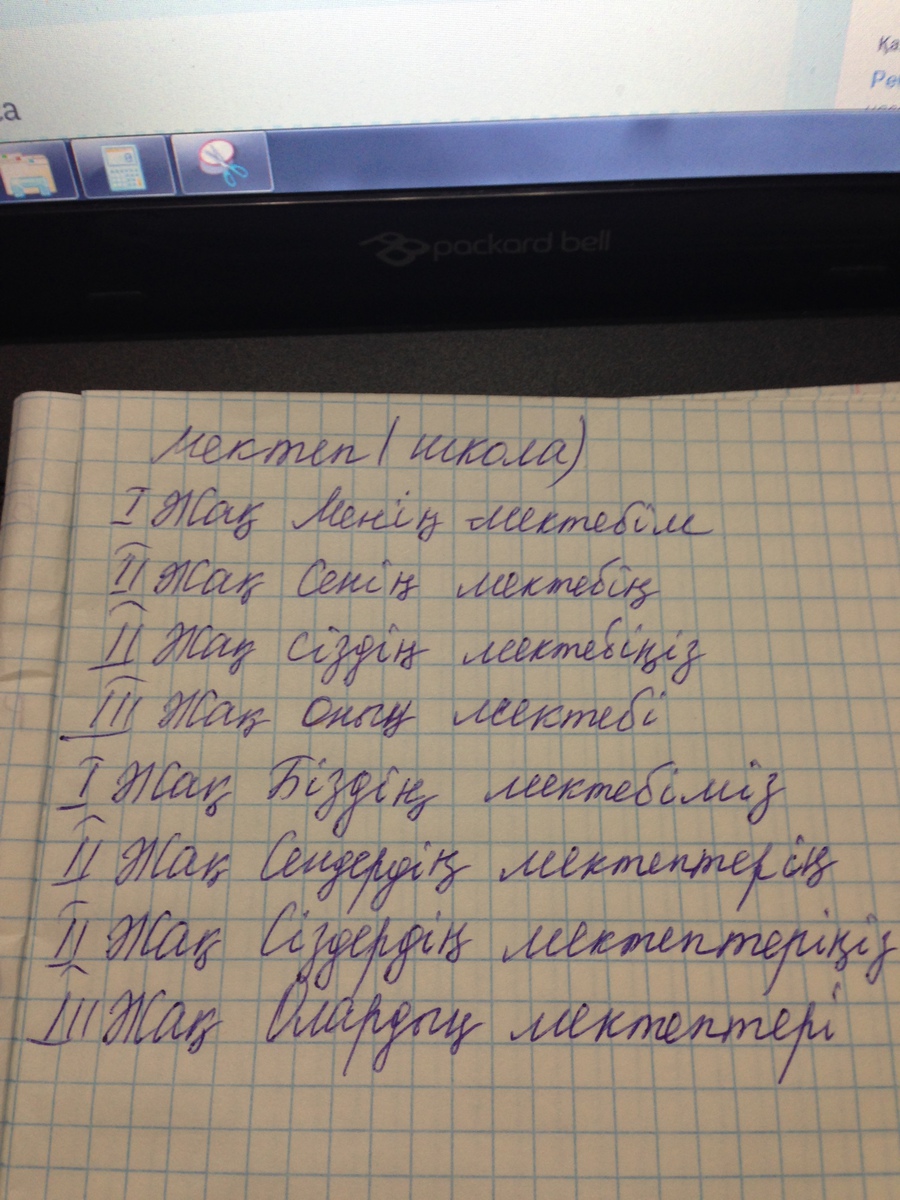 Қа
Ре
са
packard bell
мектеп (школа)
I Жақ Менің мектебім
II Жақ Сенің мектебің
II Жақ Сіздің мектебіңіз
III Жақ Оның мектебі
I Жақ Біздің мектебіміз
II Жақ Сендердің мектептерің
II Жақ Сіздердің мектептеріңіз
III Жақ Олардың мектептері